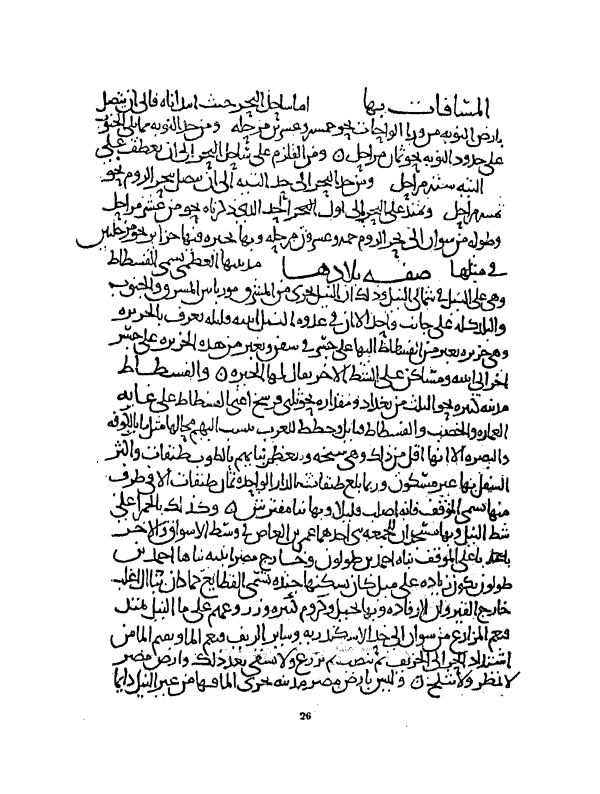 المسافات بها اما ساحل البحر حيث ابتداناه فالى ان يتصل
بارض النوبه من ورا الواحات نحو خمس وعشرين مرحله ومن حد النوبه مما يلى الجنوب
على حدود النوبه نحو ثمان مراحل ومن القلزم على ساحل البحر الى ان يعطف على
التيه ست مراحل ومن حد البحر الى حد التيه الى ان يتصل ببحر الروم نحو
مراحل ويمتد على البحر الى اول الحد الذى ذكرناه نحو من عشر مراحل
وطوله من سوان الى بحر الروم خمس وعشرون مرحله وبها بحيره فيها جزاير نحو مرحلتين
فى مثلها صفه بلادها مدينتها العظمى تسمى الفسطاط
وهى على النيل فى شمالى النيل وذلك ان النيل يجرى من المشرق بين المشرق والجنوب
والبلد كله على جانب واحد الا ان فى عدوه النيل ابنيه قليله تعرف بالجزيره
وهى جزيره يعبر من الفسطاط اليها على جسر فى سفن ويعبر من هذه الجزيره على جسر
اخر الى ابنيه ومساكن على الشط الاخر يقال لها الجيزه والفسطاط
مدينه كبيره نحو الثلث من بغداد ومقداره نحو ثلثى فرسخ اعنى الفسطاط على غايه
العماره والخصب والفسطاط قبايل وخطط للعرب تنسب اليهم محالها مثل ما بالكوفه
والبصره الا انها اقل من ذلك وهى سبخه ومعظم بنايهم بالطوب طبقات واكثر
السفل بها غير مسكون وربما بلغ طبقات الدار الواحده ثمان طبقات الا فى طرف
منها يسمى الموقف فانه اصلب قليلا وبها بنا مفترش وكذلك بالحمرا على
شط النيل وبها مسجدان للجمعه بنى احدهما عمرو بن العاص فى وسط الاسواق والاخر
باعلى الموقف بناه احمد بن طولون وخارج مصر ابنيه بناها احمد بن
طولون تكون زياده على ميل كان يسكنها جنده تسمى القطايع كما كان بنا ال اغلب
خارج القيروان الرقاده وبها نخيل وكروم كثيره وزروعهم على ما النيل يمتد
فيعم المزارع من سوان الى حد الاسكندريه وساير الريف فيعم الما ويقيم الما من
اشتداد الحر الى الخريف ثم ينصب ثم يزرع ولا يسقى بعد ذلك وارض مصر
لا تمطر ولا تثلج وليس بارض مصر مدينه يجرى الما فيها من غير النيل دايما
26